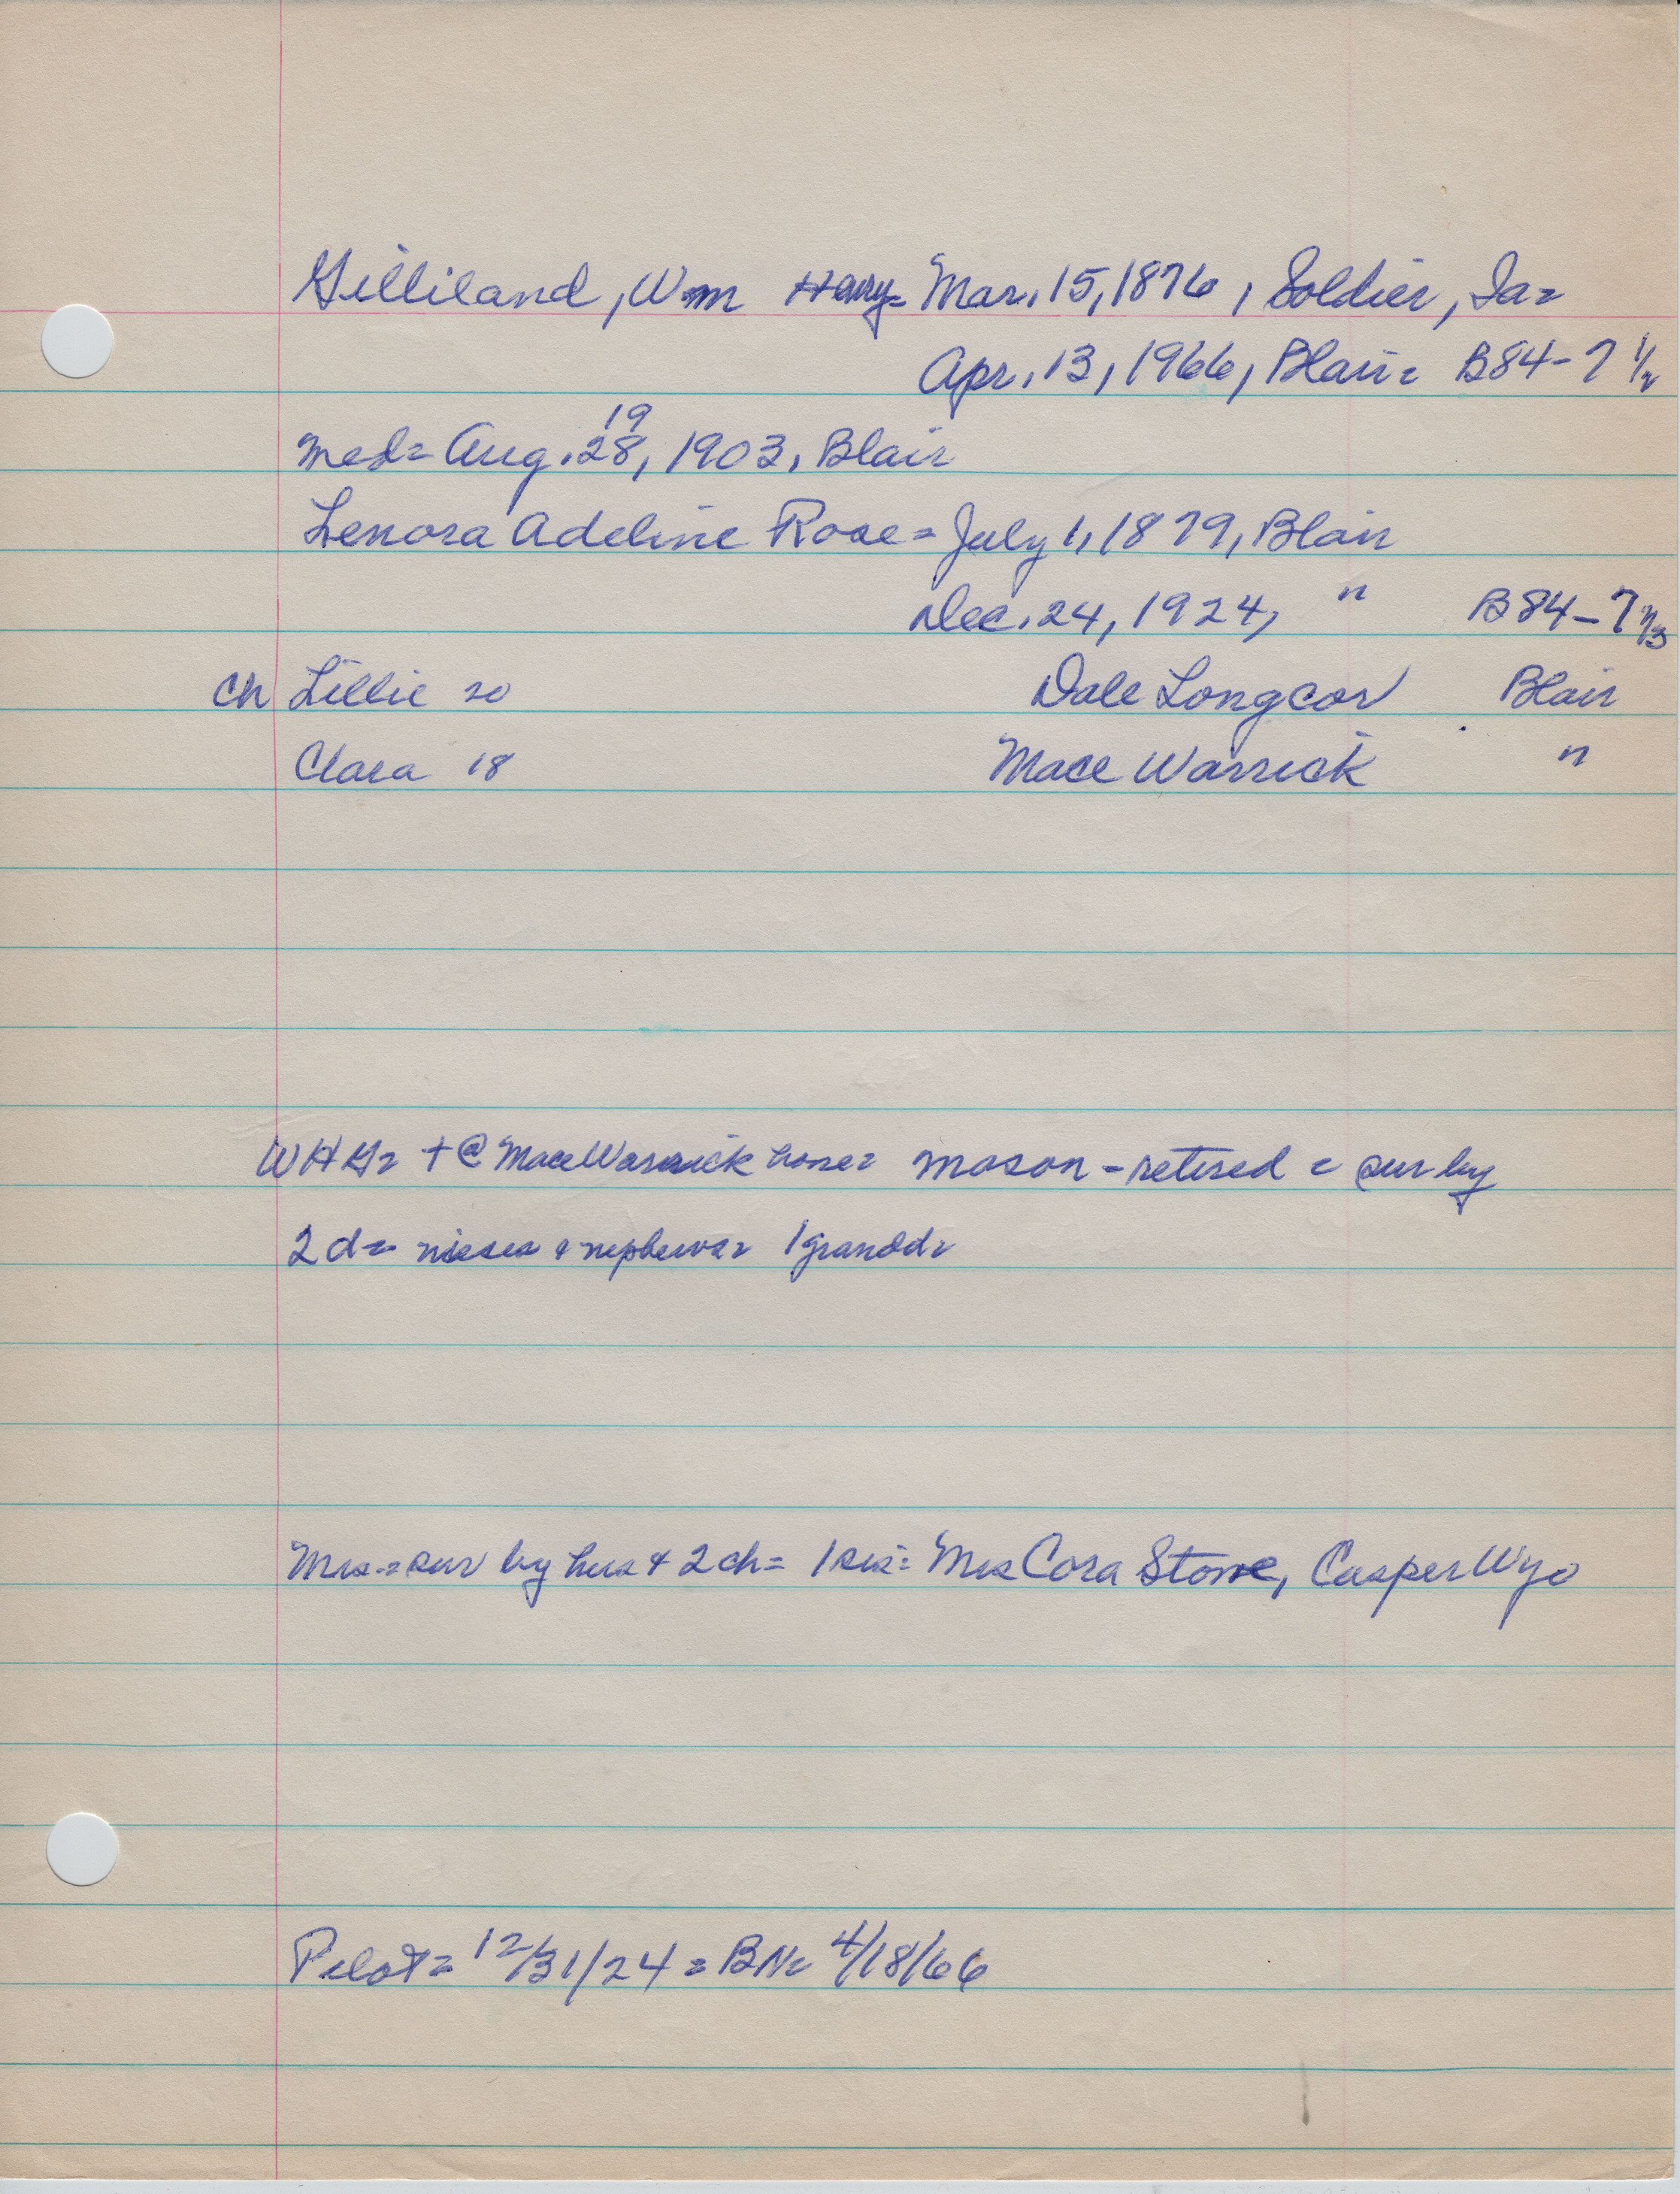 Gilliland, Wm Harry = Mar. 15, 1876, Soldier, Ia =
Apr. 13, 1966, Blair = B84-7 1/2
med = Aug. 28, 1903, Blair
19
Lenora Adeline Rose = July 1, 1879, Blair
Dec. 24, 1924, " B84-7 1/3
ch Lillie 20 Dale Longcor Blair
Clara 18 Mace Warrick "
WHG = + @ Mace Warrick home = mason - retired = sur by
2 d = nieses & nephews = 1 grandd =
Mrs = sur by hus & 2 ch = 1 sis = Mrs Cora Stone, Casper Wyo
Pilot = 12/31/24 = BN = 4/18/66